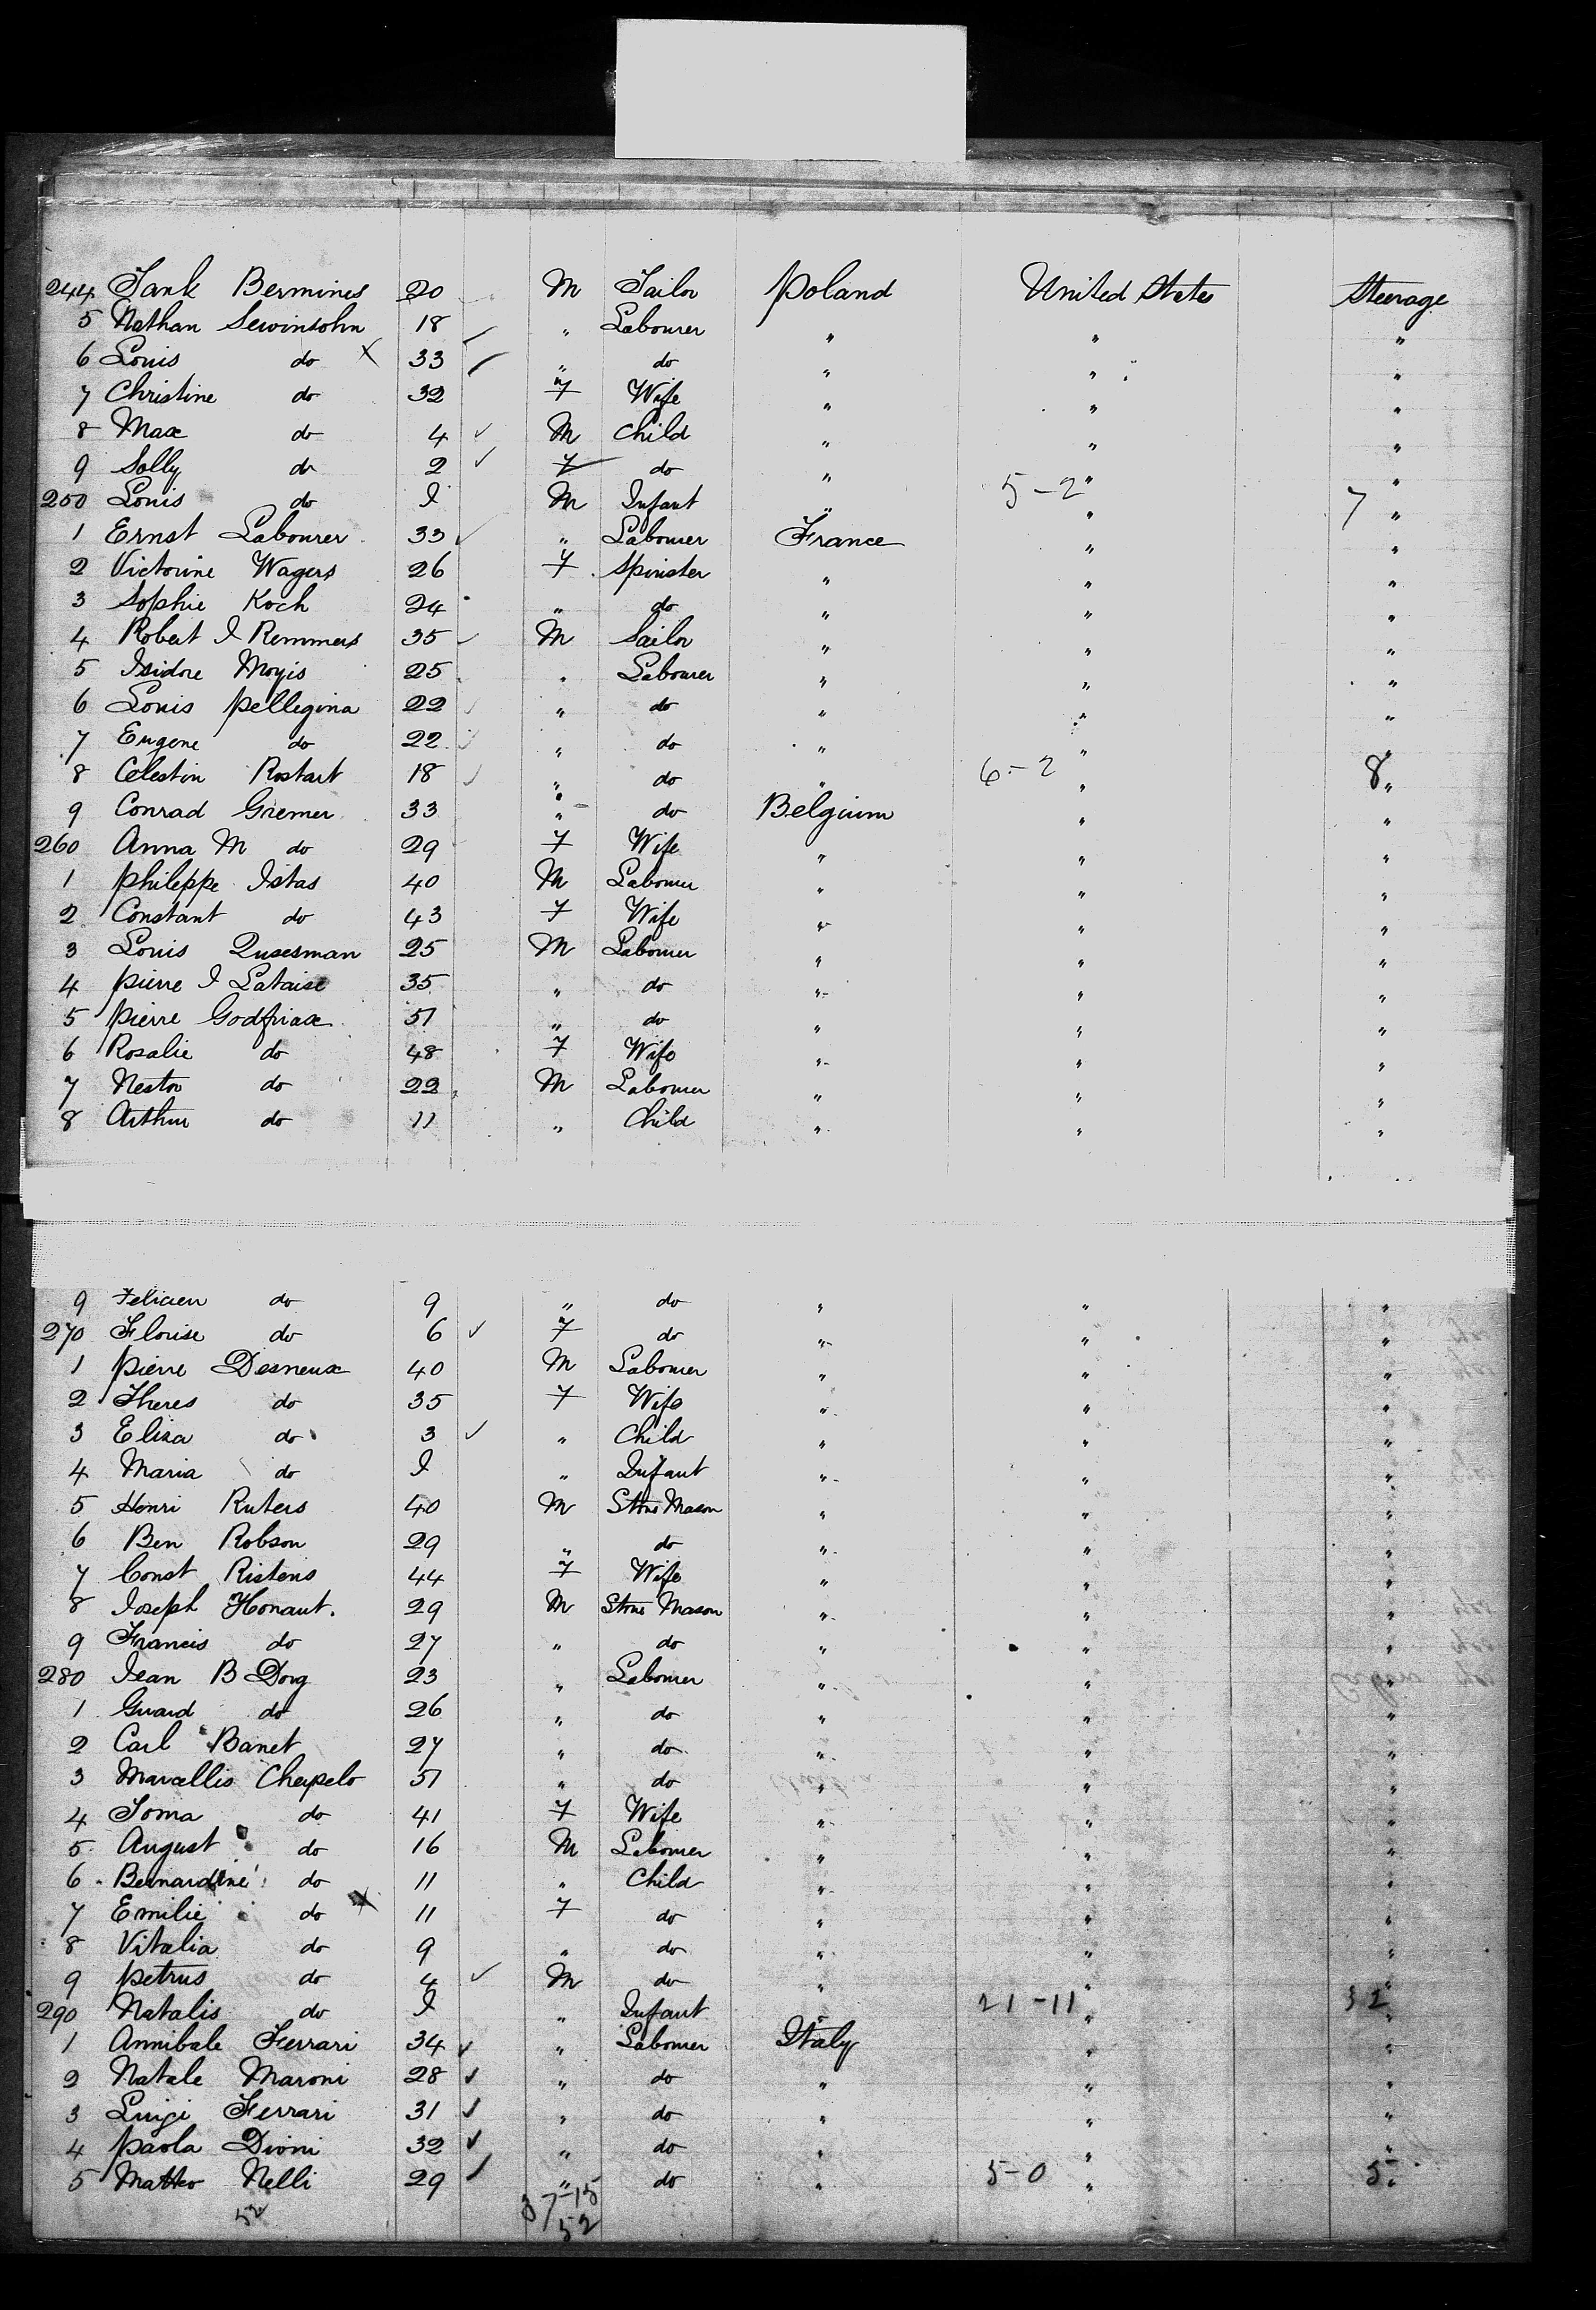 244 Jank Bermines 20 M Tailor Poland United States Steerage
5 Nathan Sewinsohn 18 " Labourer " " "
6 Louis do X 33 " do " " "
7 Christine do 32 F Wife " " "
8 Max do 4 ✓ M Child " " "
9 Solly do 2 ✓ F do " " "
250 Louis do I M Infant " 5-2 " 7 "
1 Ernst Labourer 33 ✓ " Labourer France " "
2 Victorine Wagers 26 F Spinster " " "
3 Sophie Koch 24 " do " " "
4 Robert I Remmers 35 M Sailor " " "
5 Isidore Moyis 25 " Labourer " " "
6 Louis Pellegina 22 ✓ " do " " "
7 Eugene do 22 ✓ " do " " "
8 Celestin Rostart 18 ✓ " do " 6-2 " 8 "
9 Conrad Griemer 33 " do Belgium " "
260 Anna M do 29 F Wife " " "
1 Phileppe Istas 40 M Labourer " " "
2 Constant do 43 F Wife " " "
3 Louis Qusesman 25 M Labourer " " "
4 Pierre I Lataise 35 " do " " "
5 Pierre Godfriax 51 " do " " "
6 Rosalie do 48 F Wife " " "
7 Nestor do 22 M Labourer " " "
8 Arthur do 11 " Child " " "
9 Felicien do 9 " do " " "
270 Florise do 6 ✓ F do " " "
1 Pierre Desneux 40 M Labourer " " "
2 Theres do 35 F Wife " " "
3 Elisa do 3 ✓ " Child " " "
4 Maria do I " Infant " " "
5 Henri Ruters 40 M Stone Mason " " "
6 Ben Robson 29 " do " " "
7 Const Ristens 44 F Wife " " "
8 Joseph Honaut. 29 M Stone Mason " " "
9 Francis do 27 " do " " "
280 Jean B Dorg 23 " Labourer " " "
1 Guard do 26 " do " " "
2 Carl Banet 27 " do " " "
3 Marcellis Chapelo 51 " do " " "
4 Toma do 41 F Wife " " "
5 August do 16 M Labourer " " "
6 Bernardine do 11 " Child " " "
7 Emilie do X 11 F do " " "
8 Vitalia do 9 " do " " "
9 Petrus do 4 ✓ M do " " "
290 Natalis do I " Infant " 21-11 " 32 "
1 Annibale Ferrari 34 ✓ " Labourer Italy " "
2 Natale Maroni 28 ✓ " do " " "
3 Luigi Ferrari 31 ✓ " do " " "
4 Paola Dioni 32 ✓ " do " " "
5 Matteo Nelli 29 ✓ " do " 5-0 " 5 "
52 37-15
52